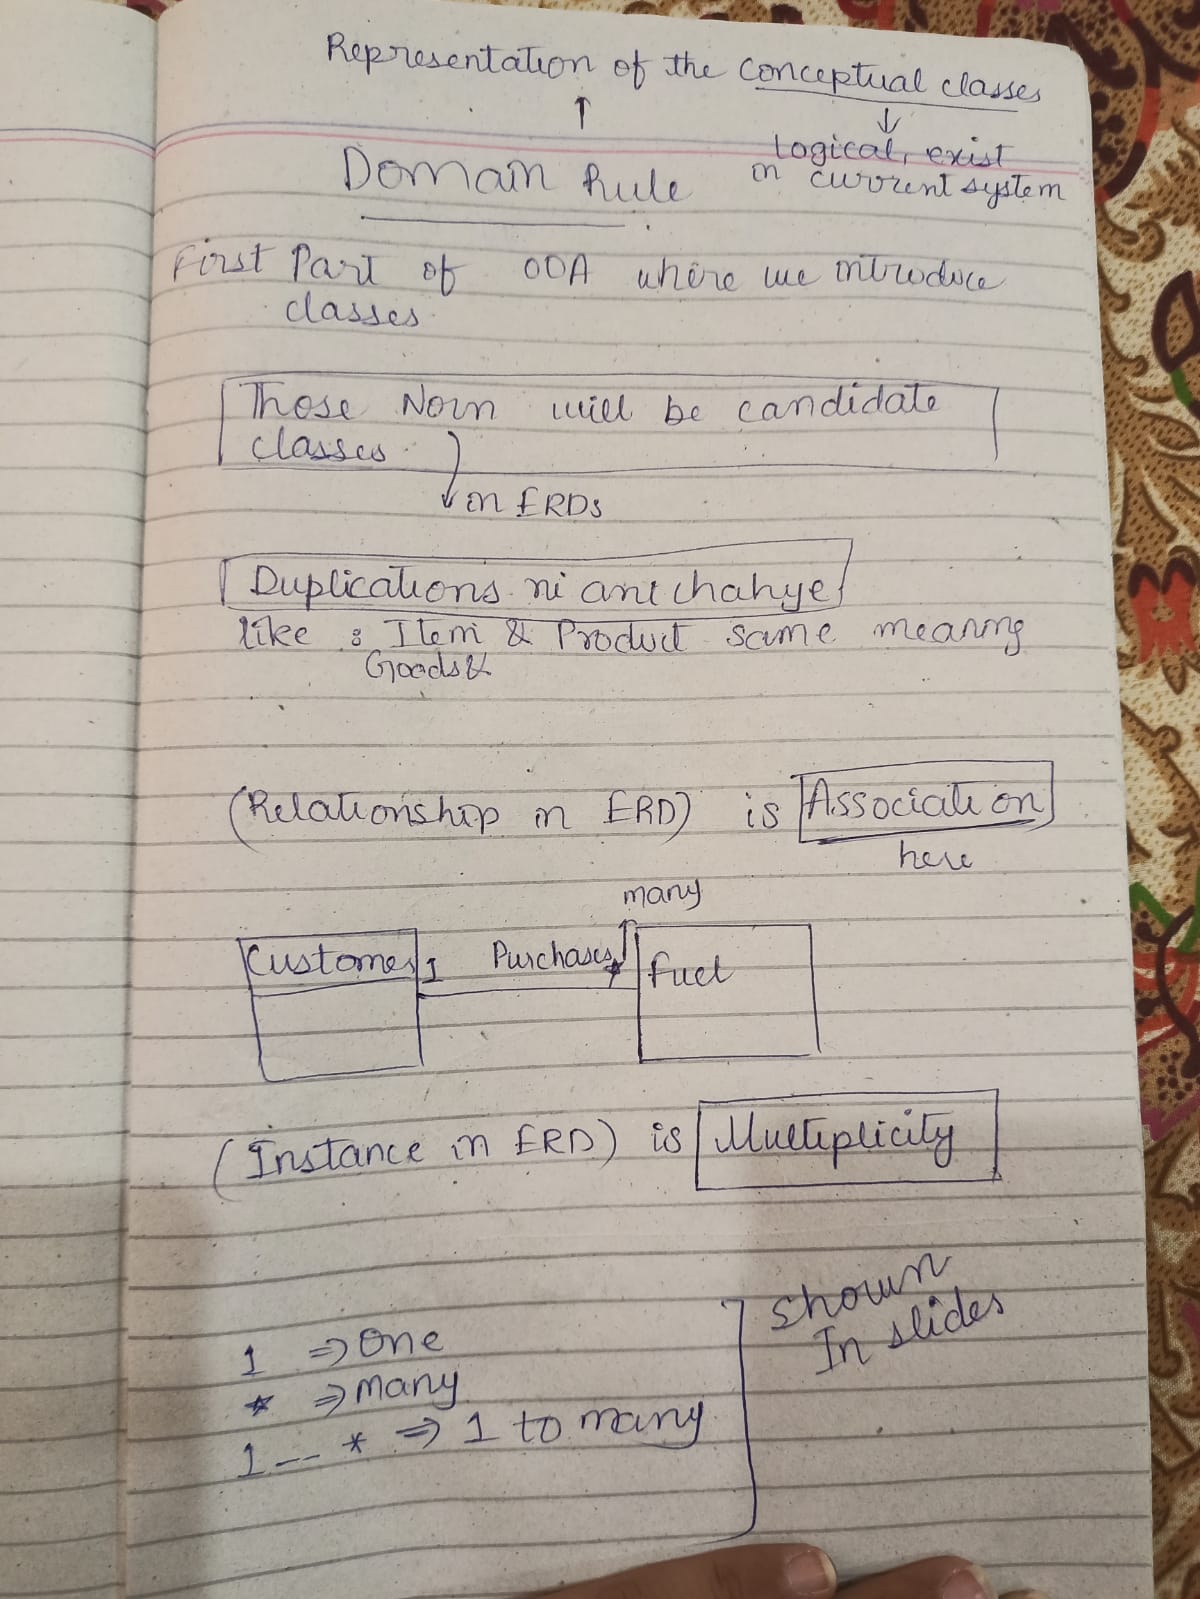 Representation of the conceptual classes
↑
↓
Logical, exist
in current system
Domain Rule
First Part of OOA where we introduce
classes.
Those Noun will be candidate
classes.
in ERDs
Duplications ni ani chahye
like : Item & Product same meaning
Goods &
(Relationship in ERD) is Association
here
many
Customer 1 Purchases * Fuel
(Instance in ERD) is Multiplicity
1 ⇒ One
* ⇒ many
1--* ⇒ 1 to many
Shown
In slides